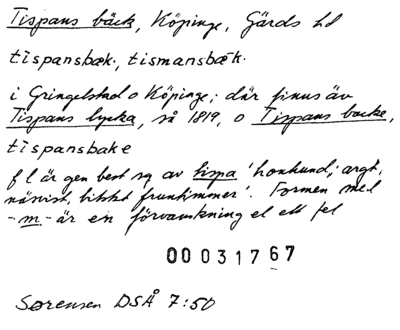 Tispans bäck, Köpinge, Gärds hd
tispansbæk·, tismansbæk·
i Gringelstad o Köpinge; där finns äv
Tispans lycka, så 1819, o Tispans backe,
tispansbake
f l är gen best sg av tispa 'honhund; argt,
näsvist, litet fruntimmer'. Formen med
-m- är en förvanskning el ett fel
00 031767
Sørensen DSÅ 7:50